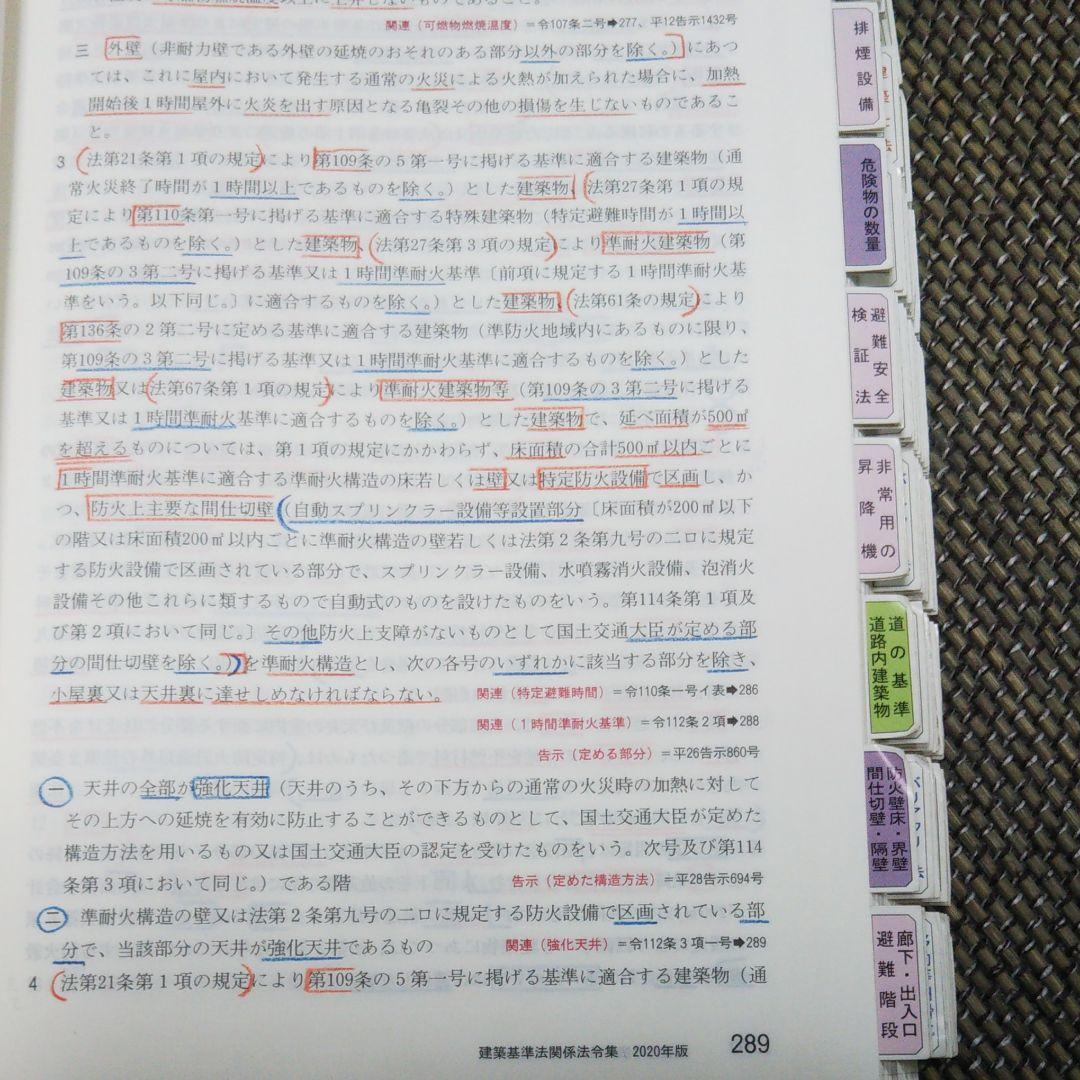 関連（可燃物燃焼温度）＝令107条二号➡277、平12告示1432号
三 外壁（非耐力壁である外壁の延焼のおそれのある部分以外の部分を除く。）にあつ
ては、これに屋内において発生する通常の火災による火熱が加えられた場合に、加熱
開始後1時間屋外に火炎を出す原因となる亀裂その他の損傷を生じないものであるこ
と。
3 法第21条第1項の規定により第109条の5第一号に掲げる基準に適合する建築物（通
常火災終了時間が1時間以上であるものを除く。）とした建築物、法第27条第1項の規
定により第110条第一号に掲げる基準に適合する特殊建築物（特定避難時間が1時間以
上であるものを除く。）とした建築物、法第27条第3項の規定により準耐火建築物（第
109条の3第二号に掲げる基準又は1時間準耐火基準〔前項に規定する1時間準耐火基
準をいう。以下同じ。〕に適合するものを除く。）とした建築物、法第61条の規定により
第136条の2第二号に定める基準に適合する建築物（準防火地域内にあるものに限り、
第109条の3第二号に掲げる基準又は1時間準耐火基準に適合するものを除く。）とした
建築物又は法第67条第1項の規定により準耐火建築物等（第109条の3第二号に掲げる
基準又は1時間準耐火基準に適合するものを除く。）とした建築物で、延べ面積が500㎡
を超えるものについては、第1項の規定にかかわらず、床面積の合計500㎡以内ごとに
1時間準耐火基準に適合する準耐火構造の床若しくは壁又は特定防火設備で区画し、か
つ、防火上主要な間仕切壁（自動スプリンクラー設備等設置部分〔床面積が200㎡以下
の階又は床面積200㎡以内ごとに準耐火構造の壁若しくは法第2条第九号の二ロに規定
する防火設備で区画されている部分で、スプリンクラー設備、水噴霧消火設備、泡消火
設備その他これらに類するもので自動式のものを設けたものをいう。第114条第1項及
び第2項において同じ。〕その他防火上支障がないものとして国土交通大臣が定める部
分の間仕切壁を除く。）を準耐火構造とし、次の各号のいずれかに該当する部分を除き、
小屋裏又は天井裏に達せしめなければならない。 関連（特定避難時間）＝令110条一号イ表➡286
関連（1時間準耐火基準）＝令112条2項➡288
告示（定める部分）＝平26告示860号
一 天井の全部が強化天井（天井のうち、その下方からの通常の火災時の加熱に対して
その上方への延焼を有効に防止することができるものとして、国土交通大臣が定めた
構造方法を用いるもの又は国土交通大臣の認定を受けたものをいう。次号及び第114
条第3項において同じ。）である階 告示（定めた構造方法）＝平28告示694号
二 準耐火構造の壁又は法第2条第九号の二ロに規定する防火設備で区画されている部
分で、当該部分の天井が強化天井であるもの 関連（強化天井）＝令112条3項一号➡289
4 法第21条第1項の規定により第109条の5第一号に掲げる基準に適合する建築物（通
建築基準法関係法令集 2020年版 289
排煙設備
危険物の数量
避難安全
検証法
非常用の
昇降機
道の基準
道路内建築物
防火壁床・界壁
間仕切壁・隔壁
廊下・出入口
避難階段